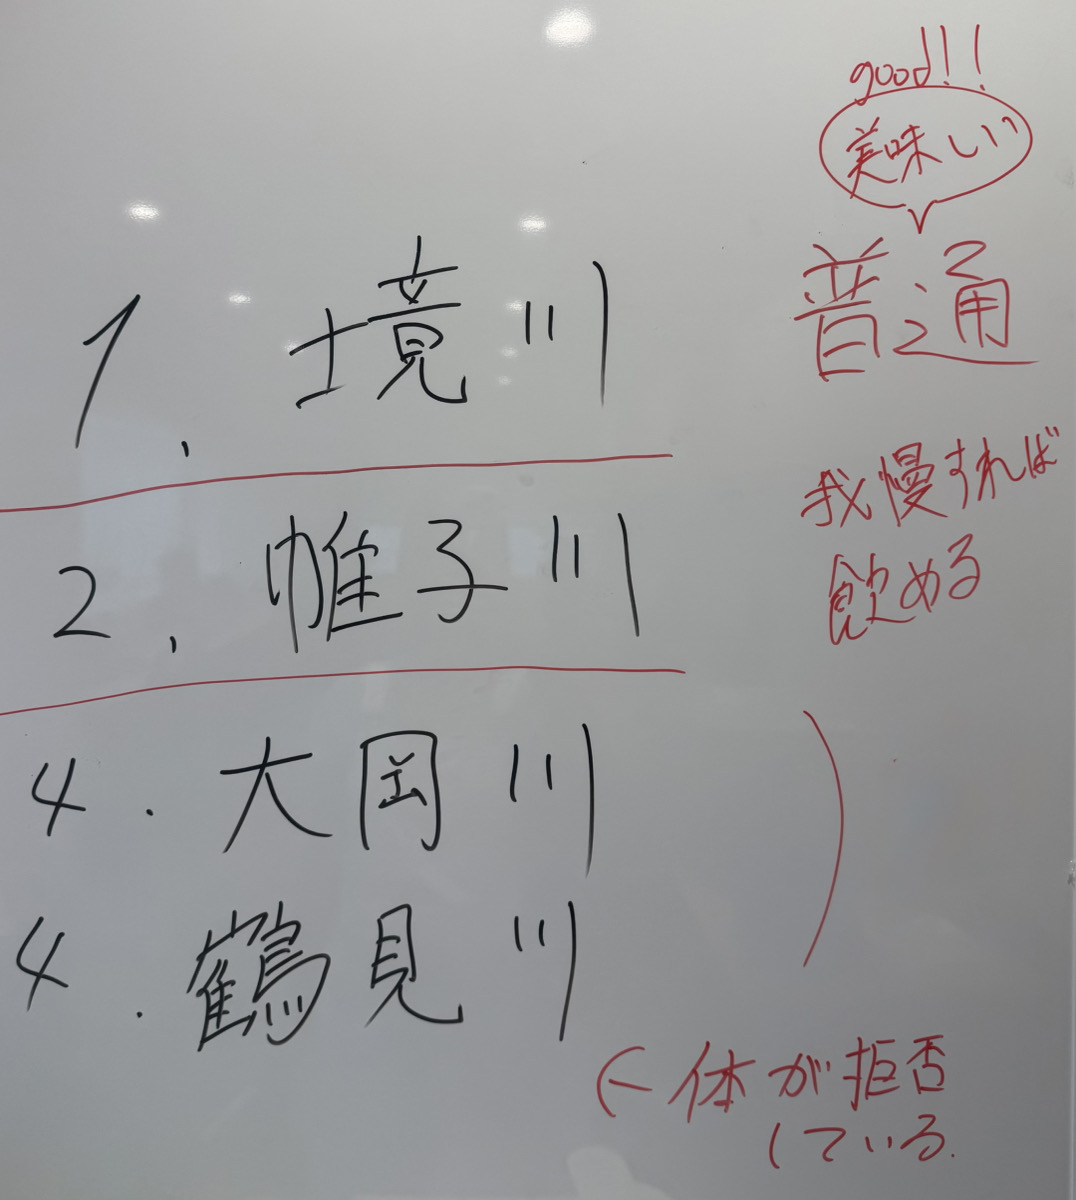 good!!
美味しい
1. 境川
普通
2. 帷子川
我慢すれば
飲める
4. 大岡川
4. 鶴見川
←体が拒否
している.